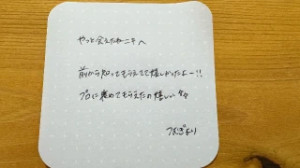 やっと会えたねニキへ
前から知ってもらえてて嬉しかったよー!!
プロに褒めてもらえたの嬉しい
つむぎより